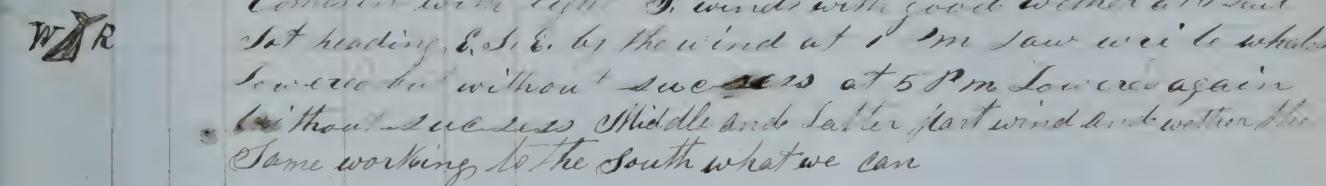 Comes in with light S. winds with good wether all sail
W R Sot heading E. S. E. by the wind at 1 Pm Saw whales
Lowered but without success at 5 Pm Lowered again
without success Middle and Latter part wind and wether the
Same working to the South what we can